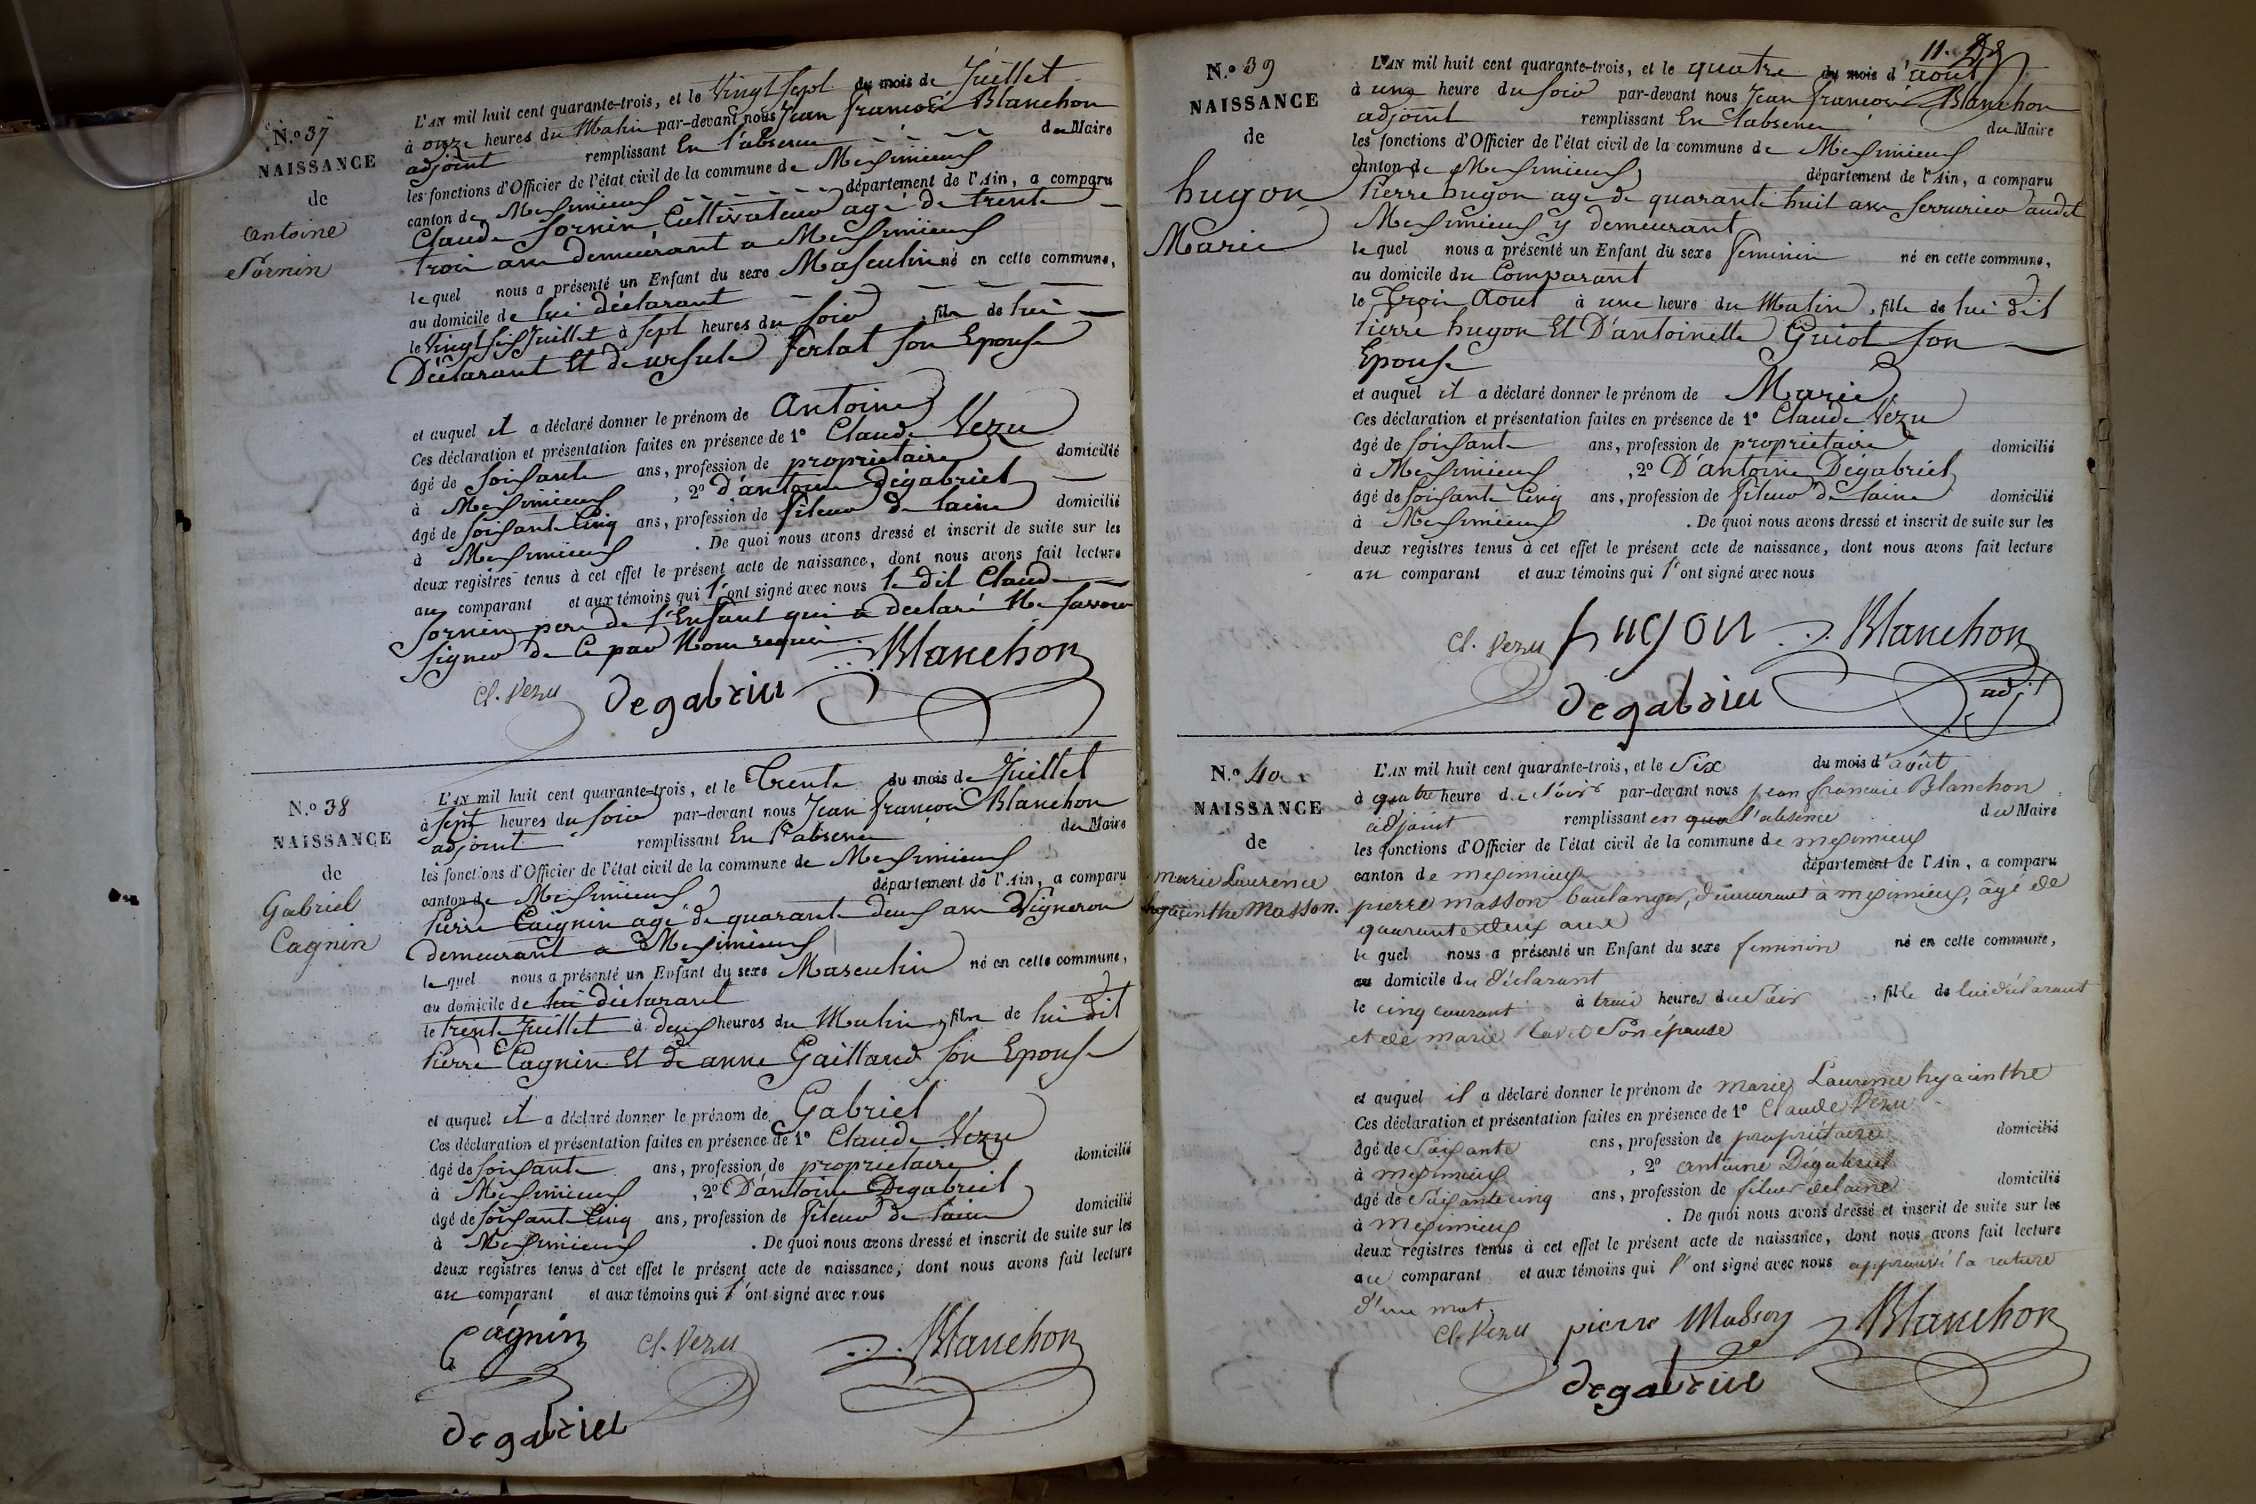 N.º 37
NAISSANCE
de
antoine
Sornin
L'AN mil huit cent quarante-trois, et le Vingt Sept du mois de Juillet
à onze heures du Matin par-devant nous Jean françois Blanchon
adjoint remplissant En l'absence du Maire
les fonctions d'Officier de l'état civil de la commune de Meximieux
canton de Meximieux département de l'Ain, a comparu
Claude Sornin Cultivateur agé de trente
trois ans demeurant a Meximieux
lequel nous a présenté un Enfant du sexe Masculin né en cette commune,
au domicile de lui déclarant
le Vingt six Juillet à Sept heures du Soir, fils de lui
Déclarant Et de ursule ferlat son Epouse
et auquel il a déclaré donner le prénom de antoine
Ces déclaration et présentation faites en présence de 1º Claude Vezu
âgé de Soixante ans, profession de propriétaire domicilié
à Meximieux, 2º D'antoine Dégabriel
âgé de Soixante Cinq ans, profession de fileur de laine domicilié
à Meximieux. De quoi nous avons dressé et inscrit de suite sur les
deux registres tenus à cet effet le présent acte de naissance, dont nous avons fait lecture
au comparant et aux témoins qui l'ont signé avec nous le dit Claude
Sornin pere de l'Enfant qui a declaré Ne Savoir
signer de Ce par Nous requis.
Blanchon
Cl. Vezu degabriel
N.º 38
NAISSANCE
de
Gabriel
Cagnin
L'AN mil huit cent quarante-trois, et le Trente du mois de Juillet
à Sept heures du Soir par-devant nous Jean françois Blanchon
adjoint remplissant En l'absence du Maire
les fonctions d'Officier de l'état civil de la commune de Meximieux
canton de Meximieux département de l'Ain, a comparu
Pierre Caignin agé de quarante deux ans Vigneron
demeurant a Meximieux
lequel nous a présenté un Enfant du sexe Masculin né en cette commune,
au domicile de lui déclarant
le trente Juillet à deux heures du Matin, fils de lui dit
Pierre Cagnin Et de anne Gaillard son Epouse
et auquel il a déclaré donner le prénom de Gabriel
Ces déclaration et présentation faites en présence de 1º Claude Vezu
âgé de Soixante ans, profession de propriétaire domicilié
à Meximieux, 2º D'antoine Degabriel
âgé de Soixante Cinq ans, profession de fileur de laine domicilié
à Meximieux. De quoi nous avons dressé et inscrit de suite sur les
deux registres tenus à cet effet le présent acte de naissance, dont nous avons fait lecture
au comparant et aux témoins qui l'ont signé avec nous
Cagnin Cl. Vezu Blanchon
degabriel
11.
N.º 39
NAISSANCE
de
hugon
Marie
L'AN mil huit cent quarante-trois, et le quatre du mois d'aout
à une heure du Soir par-devant nous Jean françois Blanchon
adjoint remplissant En l'absence du Maire
les fonctions d'Officier de l'état civil de la commune de Meximieux
canton de Meximieux département de l'Ain, a comparu
Pierre hugon agé de quarante huit ans Serrurier audit
Meximieux y demeurant
lequel nous a présenté un Enfant du sexe feminin né en cette commune,
au domicile du Comparant
le Trois Aout à une heure du Matin, fille de lui dit
Pierre hugon Et D'antoinette Guiot son
Epouse
et auquel il a déclaré donner le prénom de Marie
Ces déclaration et présentation faites en présence de 1º Claude Vezu
âgé de Soixante ans, profession de propriétaire domicilié
à Meximieux, 2º D'antoine Dégabriel
âgé de Soixante Cinq ans, profession de fileur de laine domicilié
à Meximieux. De quoi nous avons dressé et inscrit de suite sur les
deux registres tenus à cet effet le présent acte de naissance, dont nous avons fait lecture
au comparant et aux témoins qui l'ont signé avec nous
Cl. Vezu hugon Blanchon
degabriel adj.t
N.º 40
NAISSANCE
de
marie Laurence
hyacinthe Masson.
L'AN mil huit cent quarante-trois, et le Six du mois d'août
à quatre heure du Soir par-devant nous jean francois Blanchon
adjoint remplissant en qua l'absence du Maire
les fonctions d'Officier de l'état civil de la commune de meximieux
canton de meximieux département de l'Ain, a comparu
pierre masson boulanger, demeurant à meximieux, âgé de
quarante deux ans
le quel nous a présenté un Enfant du sexe feminin né en cette commune,
au domicile du déclarant
le cinq courant à trois heures du Soir, fille de lui déclarant
et de marie Son épouse
et auquel il a déclaré donner le prénom de marie Laurence hyacinthe
Ces déclaration et présentation faites en présence de 1º Claude Vezu
âgé de Soixante ans, profession de propriétaire domicilié
à meximieux, 2º antoine Dégabriel
âgé de Soixante cinq ans, profession de fileur de laine domicilié
à meximieux. De quoi nous avons dressé et inscrit de suite sur les
deux registres tenus à cet effet le présent acte de naissance, dont nous avons fait lecture
au comparant et aux témoins qui l'ont signé avec nous approuvé la rature
d'un mot.
Cl. Vezu pierre Masson Blanchon
degabriel